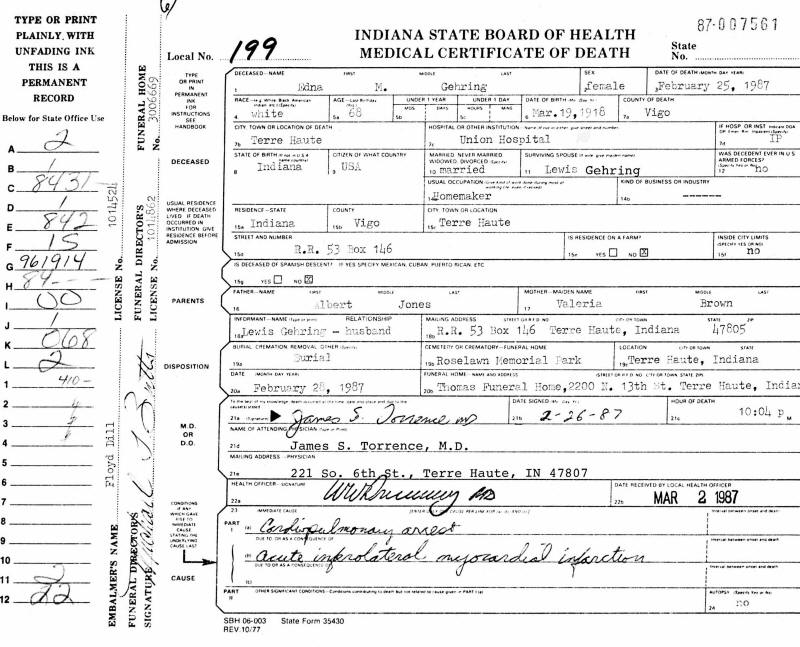 TYPE OR PRINT
PLAINLY, WITH
UNFADING INK
THIS IS A
PERMANENT
RECORD
Below for State Office Use
A 2
B 1
C 8431
D 1
E 842
F 15
G 961914
H 84--
I 00
J 1
K 068
L 2
1 410-
2
3
4
5
6
7
8
9
10
11 2
12 22
EMBALMER'S NAME Floyd Dill LICENSE No. 1014524
FUNERAL DIRECTOR'S SIGNATURE Michael J. Butts FUNERAL DIRECTOR'S LICENSE No. 1014862
FUNERAL HOME No. 3006669
INDIANA STATE BOARD OF HEALTH
MEDICAL CERTIFICATE OF DEATH
Local No. 199
87-007561
State No.
TYPE OR PRINT IN PERMANENT INK FOR INSTRUCTIONS SEE HANDBOOK
DECEASED—NAME FIRST MIDDLE LAST SEX DATE OF DEATH (MONTH DAY YEAR)
1 Edna M. Gehring 2 female 3 February 25, 1987
RACE AGE—Last Birthday UNDER 1 YEAR UNDER 1 DAY DATE OF BIRTH COUNTY OF DEATH
4 white 5a 68 5b MOS DAYS 5c HOURS MINS 6 Mar.19,1918 7a Vigo
CITY TOWN OR LOCATION OF DEATH HOSPITAL OR OTHER INSTITUTION IF HOSP OR INST
7b Terre Haute 7c Union Hospital 7d IP
DECEASED
STATE OF BIRTH CITIZEN OF WHAT COUNTRY MARRIED NEVER MARRIED WIDOWED DIVORCED SURVIVING SPOUSE WAS DECEDENT EVER IN U.S ARMED FORCES?
8 Indiana 9 USA 10 married 11 Lewis Gehring 12 no
USUAL OCCUPATION KIND OF BUSINESS OR INDUSTRY
14a Homemaker 14b -------
USUAL RESIDENCE WHERE DECEASED LIVED IF DEATH OCCURRED IN INSTITUTION GIVE RESIDENCE BEFORE ADMISSION
RESIDENCE—STATE COUNTY CITY TOWN OR LOCATION
15a Indiana 15b Vigo 15c Terre Haute
STREET AND NUMBER IS RESIDENCE ON A FARM? INSIDE CITY LIMITS
15d R.R. 53 Box 146 15e YES NO X 15f no
IS DECEASED OF SPANISH DESCENT? IF YES SPECIFY MEXICAN, CUBAN, PUERTO RICAN, ETC
15g YES NO X
PARENTS
FATHER—NAME FIRST MIDDLE LAST MOTHER—MAIDEN NAME FIRST MIDDLE LAST
16 Albert Jones 17 Valeria Brown
INFORMANT—NAME (Type or print) RELATIONSHIP MAILING ADDRESS STREET OR R.F.D. NO CITY OR TOWN STATE ZIP
18a Lewis Gehring - husband 18b R.R. 53 Box 146 Terre Haute, Indiana 47805
DISPOSITION
BURIAL, CREMATION, REMOVAL, OTHER (Specify) CEMETERY OR CREMATORY—FUNERAL HOME LOCATION CITY OR TOWN STATE
19a Burial 19b Roselawn Memorial Park 19c Terre Haute, Indiana
DATE (MONTH DAY YEAR) FUNERAL HOME—NAME AND ADDRESS (STREET OR R.F.D. NO. CITY OR TOWN, STATE, ZIP)
20a February 28, 1987 20b Thomas Funeral Home,2200 N. 13th St. Terre Haute, India
M.D. OR D.O.
To the best of my knowledge, death occurred at the time, date and place and due to the cause(s) stated DATE SIGNED HOUR OF DEATH
21a (Signature) James S. Torrence MD 21b 2-26-87 21c 10:04 P M
NAME OF ATTENDING PHYSICIAN (Type or Print)
21d James S. Torrence, M.D.
MAILING ADDRESS—PHYSICIAN
21e 221 So. 6th St., Terre Haute, IN 47807
HEALTH OFFICER—SIGNATURE DATE RECEIVED BY LOCAL HEALTH OFFICER
22a 22b MAR 2 1987
CONDITIONS IF ANY WHICH GAVE RISE TO IMMEDIATE CAUSE STATING THE UNDERLYING CAUSE LAST
CAUSE
23 IMMEDIATE CAUSE Interval between onset and death
PART I (a) Cardiopulmonary arrest
DUE TO, OR AS A CONSEQUENCE OF Interval between onset and death
(b) Acute inferolateral myocardial infarction
DUE TO OR AS A CONSEQUENCE OF Interval between onset and death
(c)
PART II OTHER SIGNIFICANT CONDITIONS—Conditions contributing to death but not related to cause given in PART I (a) AUTOPSY (Specify Yes or No)
24 no
SBH 06-003 State Form 35430
REV. 10/77